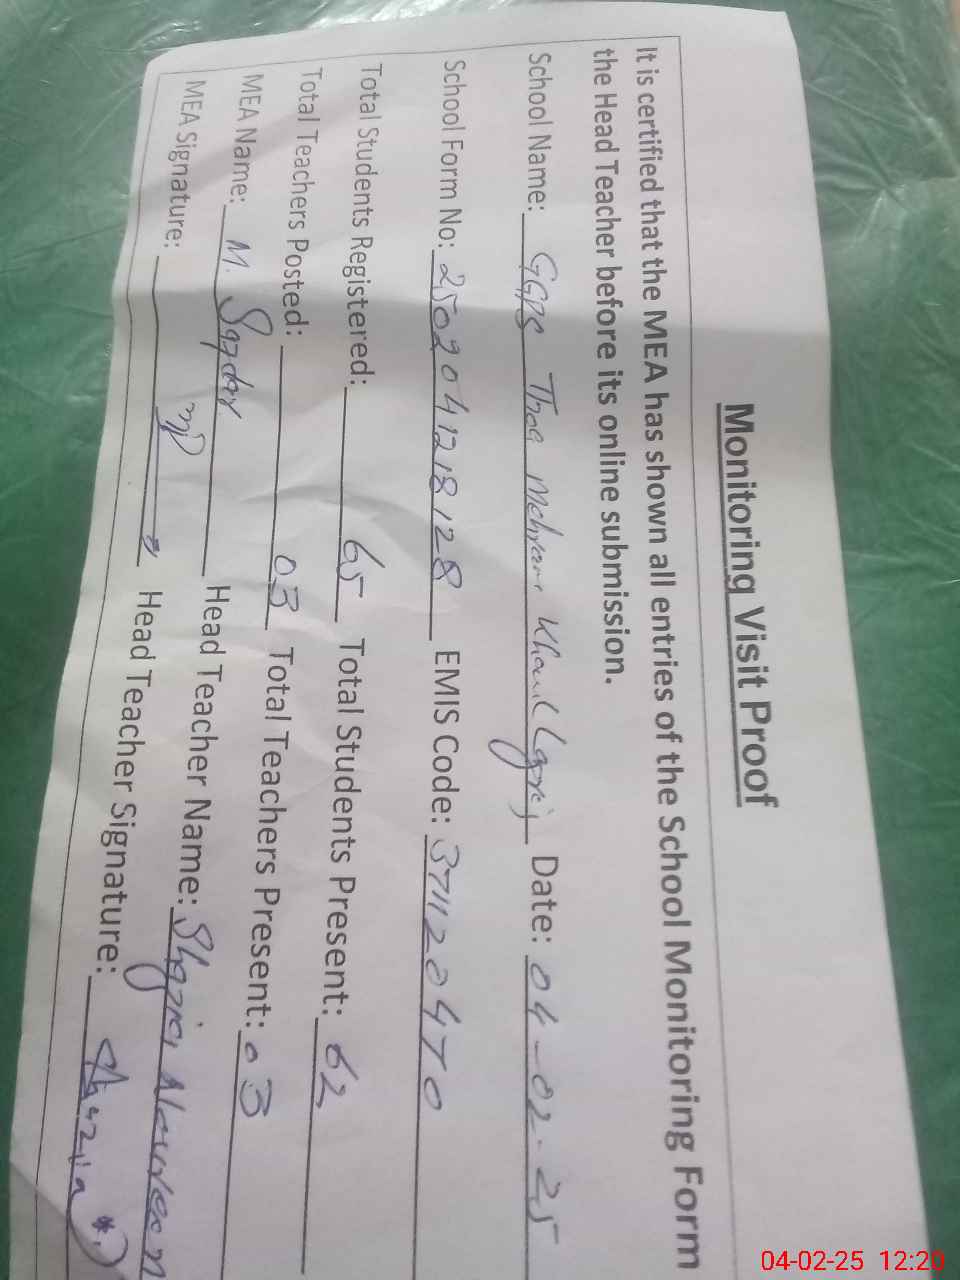 Monitoring Visit Proof
It is certified that the MEA has shown all entries of the School Monitoring Form
the Head Teacher before its online submission.
School Name: GGPS Thoa Mehram Khan Date: 04-02-25
School Form No: 2502041218128 EMIS Code: 371120470
Total Students Registered: 65 Total Students Present: 62
Total Teachers Posted: 03 Total Teachers Present: 03
MEA Name: M. Safdar Head Teacher Name: Shazia
MEA Signature: Head Teacher Signature: Shazia
04-02-25 12:20